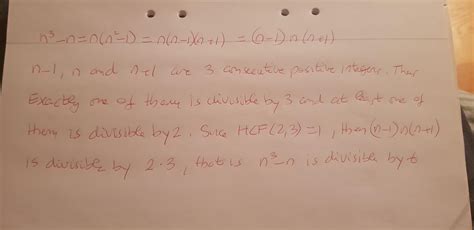 n³-n = n(n²-1) = n(n-1)(n+1) = (n-1)n(n+1)
n-1, n and n+1 are 3 consecutive positive integers. Thus
Exactly one of them is divisible by 3 and at least one of
them is divisible by 2. Since HCF(2,3)=1, then (n-1)n(n+1)
is divisible by 2·3, that is n³-n is divisible by 6